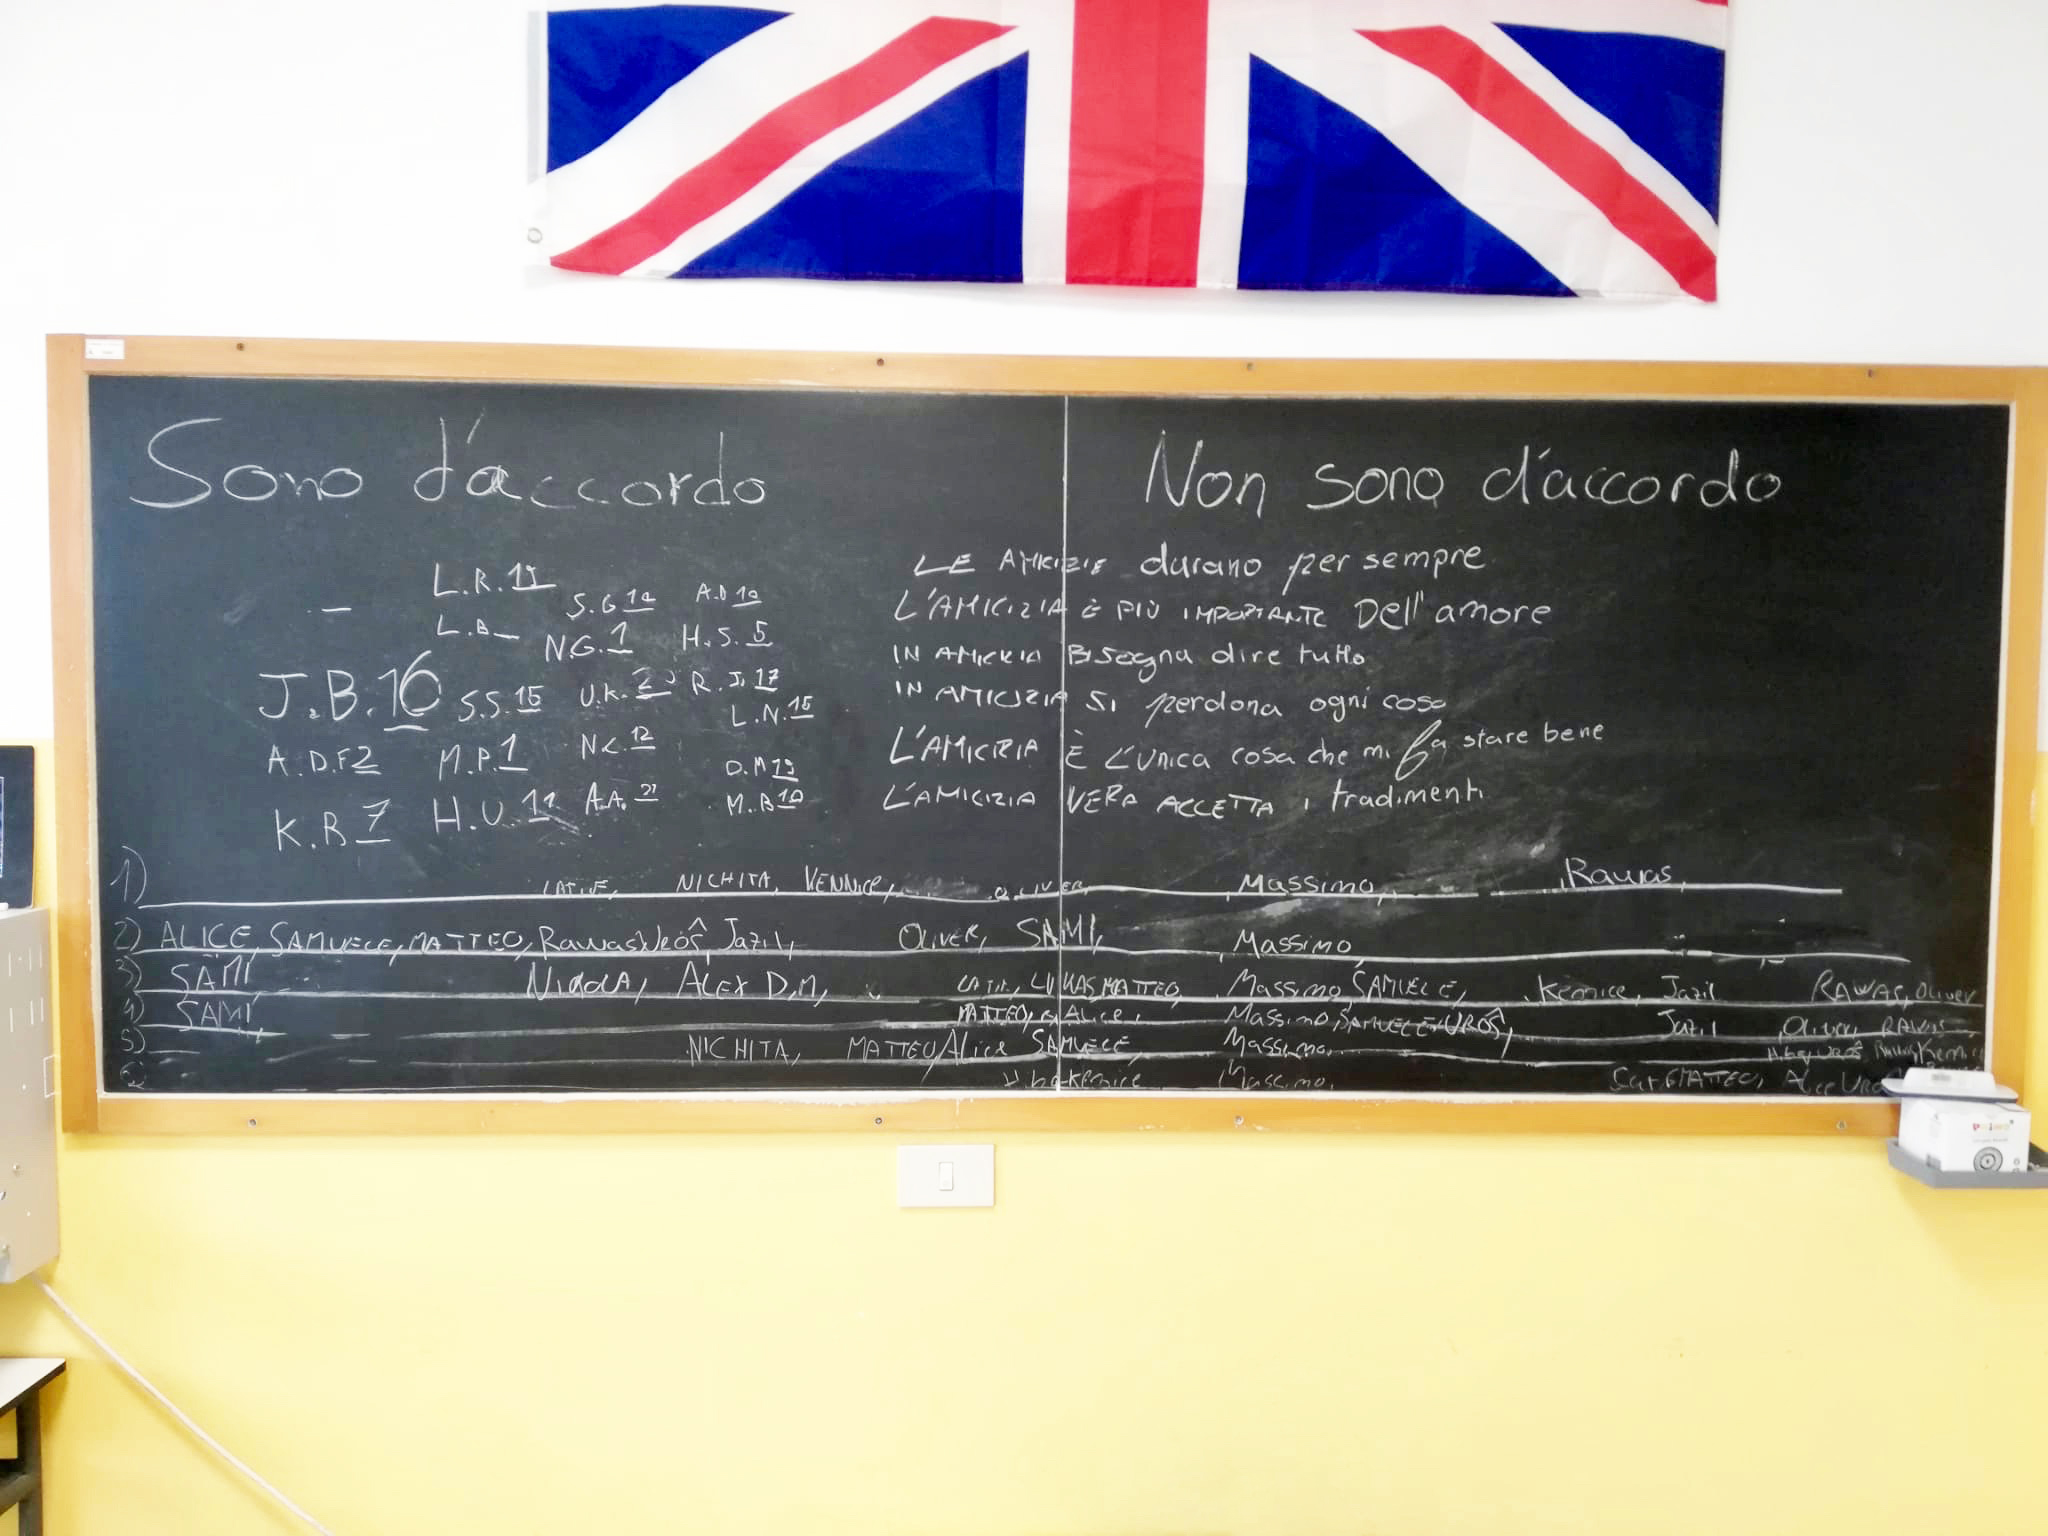 Sono d'accordo
Non sono d'accordo
L.R. 19
S.G 10
A.D 10
L.B
N.G. 1
H.S. 5
J.B. 16
S.S. 15
U.K. 2
R.J. 17
L.N. 15
A.D.F 2
M.P. 1
N.C. 12
D.M 19
K.B 7
H.U. 11
A.A. 21
M.B 10
LE AMICIZIE durano per sempre
L'AMICIZIA È PIÙ IMPORTANTE Dell'amore
IN AMICIZIA BISogna dire tutto
IN AMICIZIA SI perdona ogni cosa
L'AMICIZIA È L'UNICA cosa che mi fa stare bene
L'AMICIZIA VERA ACCETTA i tradimenti
1) NICHITA, KENNICE, OLIVER, Massimo, Rawas,
2) ALICE, SAMUELE, MATTEO, Rawas, Jazil, OLIVER, SAMI, Massimo
3) SAMI NICOLA, ALEX D.M, LUKAS, MATTEO, Massimo, SAMUELE, Kennice, Jazil RAWAS, Oliver
4) SAMI, MATTEO, Alice, Massimo, SAMUELE, UROŠ, Jazil, Oliver, RAWAS,
5) NICHITA, MATTEO, Alice SAMUELE, Massimo,
6) Kennice Massimo, MATTEO, Alice